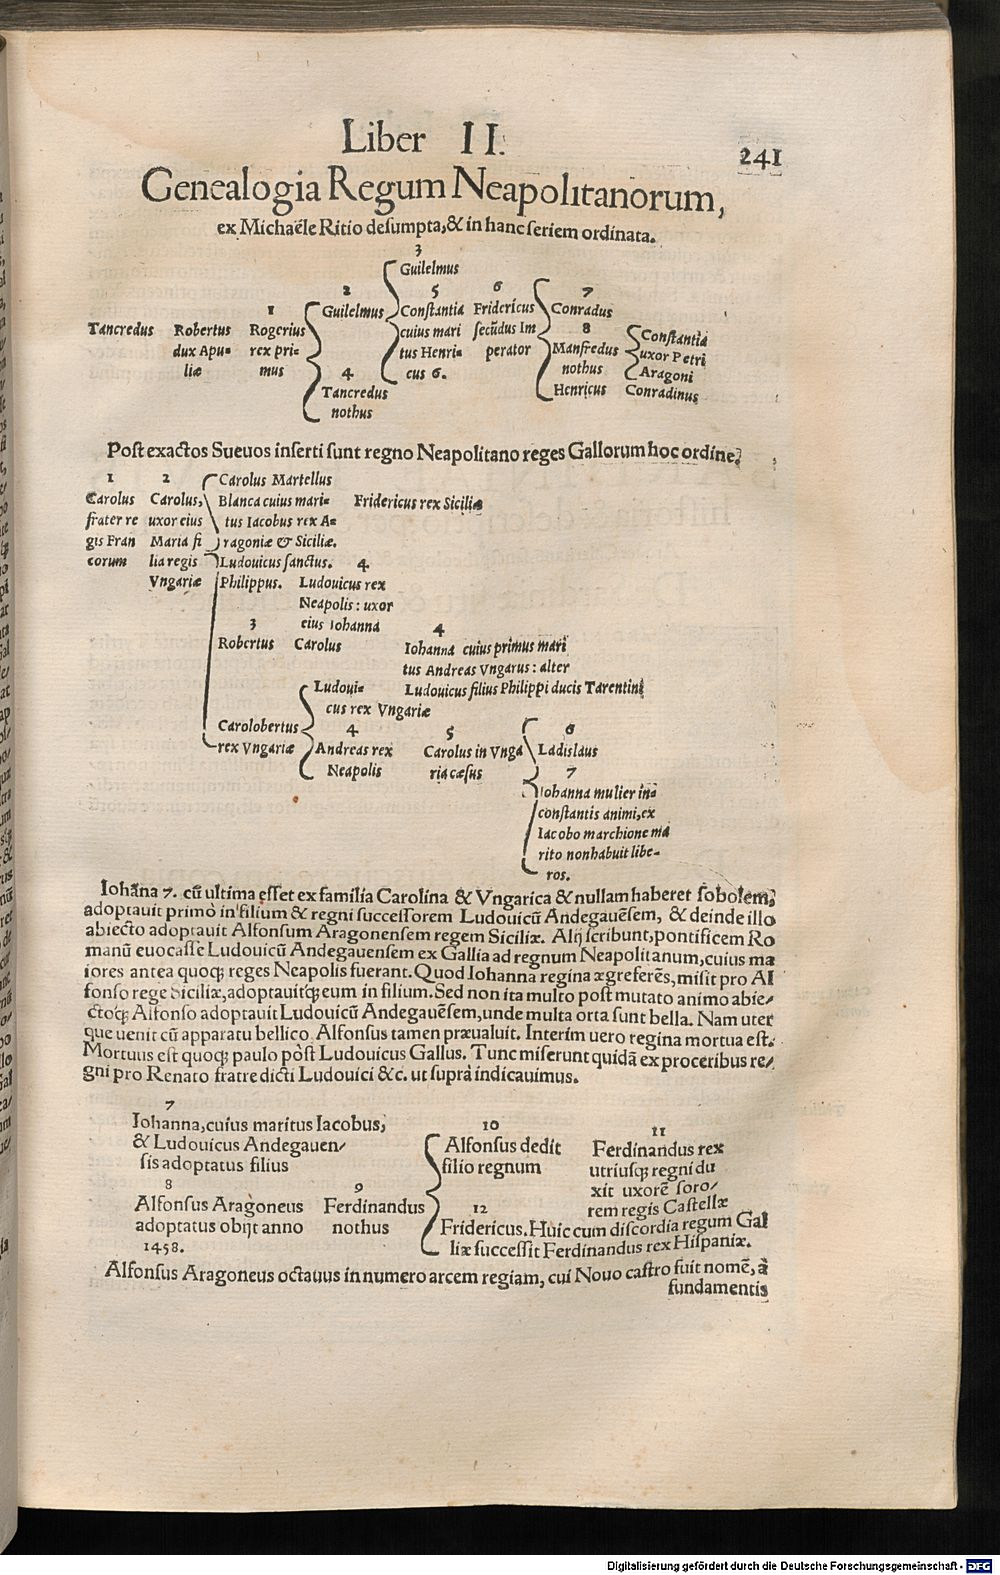 Liber II.
241
Genealogia Regum Neapolitanorum,
ex Michaële Ritio desumpta, & in hanc seriem ordinata.
3
Guilelmus
2 5 6 7
1 Guilelmus Constantia Fridericus Conradus
Tancredus Robertus Rogerius cuius mari secũdus Im 8 Constantia
dux Apu= rex pri= tus Henri= perator Manfredus uxor Petri
liæ mus 4 cus 6. nothus Aragoni
Tancredus Henricus Conradinus
nothus
Post exactos Sueuos inserti sunt regno Neapolitano reges Gallorum hoc ordine:
1 2 Carolus Martellus
Carolus Carolus, Blanca cuius mari= Fridericus rex Siciliæ
frater re uxor eius tus Iacobus rex A=
gis Fran Maria fi ragoniæ & Siciliæ.
corum lia regis Ludouicus sanctus. 4
Vngariæ Philippus. Ludouicus rex
Neapolis: uxor
3 eius Iohanna 4
Robertus Carolus Iohanna cuius primus mari
tus Andreas Vngarus: alter
Ludoui= Ludouicus filius Philippi ducis Tarentini
cus rex Vngariæ
Carolobertus 4 5 6
rex Vngariæ Andreas rex Carolus in Vnga Ladislaus
Neapolis ria cæsus 7
Iohanna mulier in=
constantis animi, ex
Iacobo marchione ma
rito non habuit libe=
ros.
Iohãna 7. cũ ultima esset ex familia Carolina & Vngarica & nullam haberet sobolem,
adoptauit primò in filium & regni successorem Ludouicũ Andegauẽsem, & deinde illo
abiecto adoptauit Alfonsum Aragonensem regem Siciliæ. Alij scribunt, pontificem Ro
manũ euocasse Ludouicũ Andegauensem ex Gallia ad regnum Neapolitanum, cuius ma
iores antea quoq; reges Neapolis fuerant. Quod Iohanna regina ægreferẽs, misit pro Al
fonso rege Siciliæ, adoptauitq; eum in filium. Sed non ita multo post mutato animo abie/
ctoq; Alfonso adoptauit Ludouicũ Andegauẽsem, unde multa orta sunt bella. Nam uter
que uenit cũ apparatu bellico, Alfonsus tamen præualuit. Interim uero regina mortua est.
Mortuus est quoq; paulo pòst Ludouicus Gallus. Tunc miserunt quidã ex proceribus re/
gni pro Renato fratre dicti Ludouici &c. ut suprà indicauimus.
7
Iohanna, cuius maritus Iacobus, 10 11
& Ludouicus Andegauen/ Alfonsus dedit Ferdinandus rex
sis adoptatus filius filio regnum utriusq; regni du
8 9 xit uxorẽ soro/
Alfonsus Aragoneus Ferdinandus 12 rem regis Castellæ
adoptatus obijt anno nothus Fridericus. Huic cum discordia regum Gal
1458. liæ successit Ferdinandus rex Hispaniæ.
Alfonsus Aragoneus octauus in numero arcem regiam, cui Nouo castro fuit nomẽ, à
fundamentis
Digitalisierung gefördert durch die Deutsche Forschungsgemeinschaft - DFG